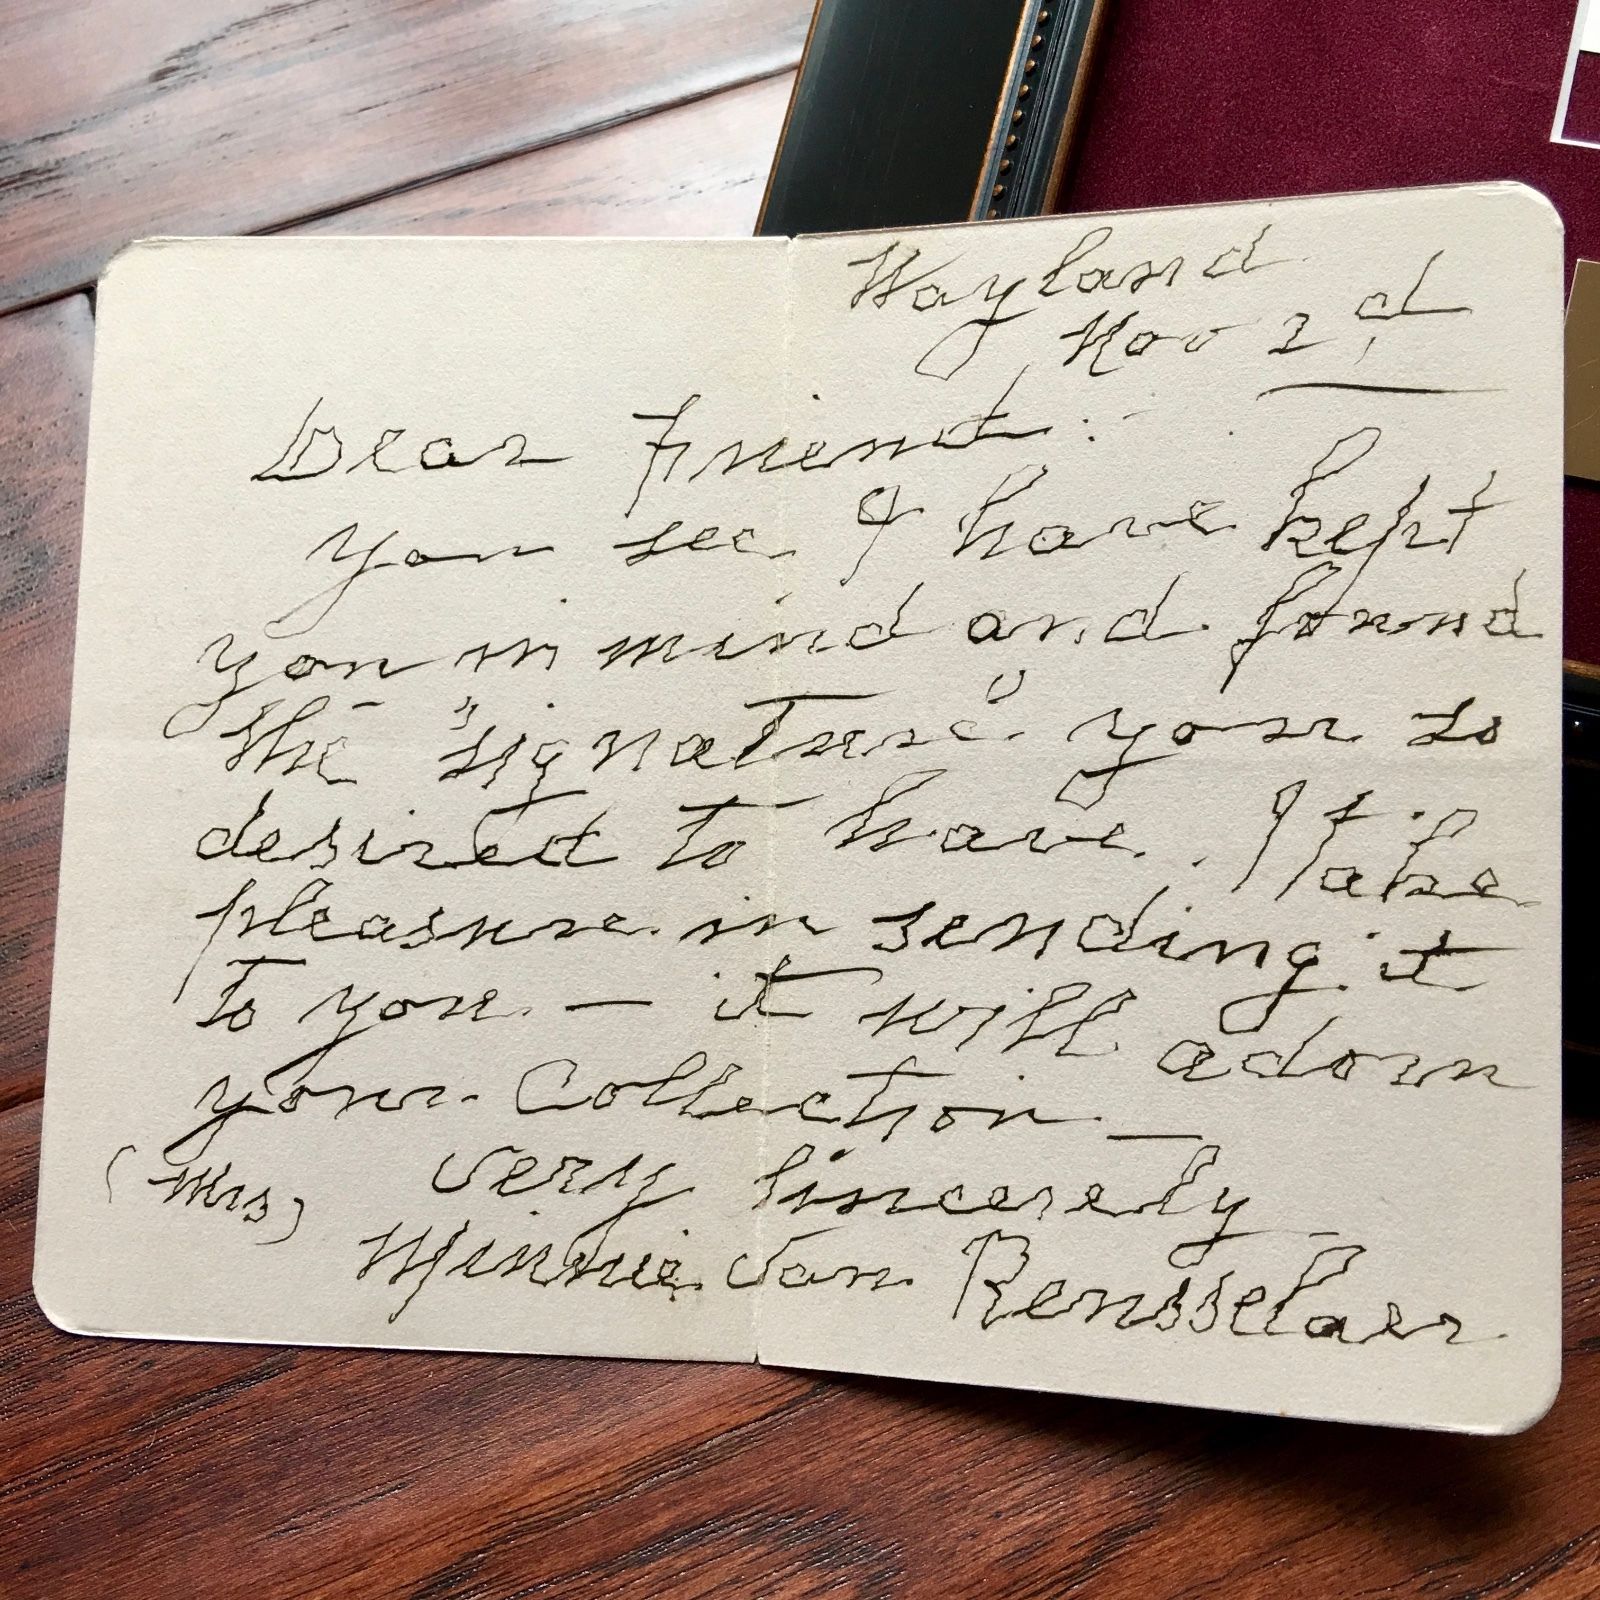 Wayland
Nov 2d
Dear Friend:-
You see I have kept
you in mind and found
the "signature" you so
desired to have. I take
pleasure in sending it
to you. — it will adorn
your Collection —
(Mrs) Very Sincerely
Minnie Van Rensselaer